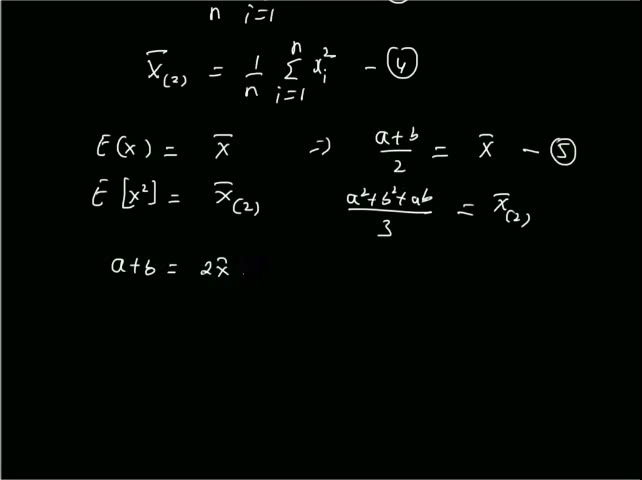 n i=1
x̄₍₂₎ = 1/n Σⁿᵢ₌₁ xᵢ² – ④
E(x) = x̄ ⇒ a+b/2 = x̄ – ⑤
E[x²] = x̄₍₂₎ a²+b²+ab/3 = x̄₍₂₎
a+b = 2x̄